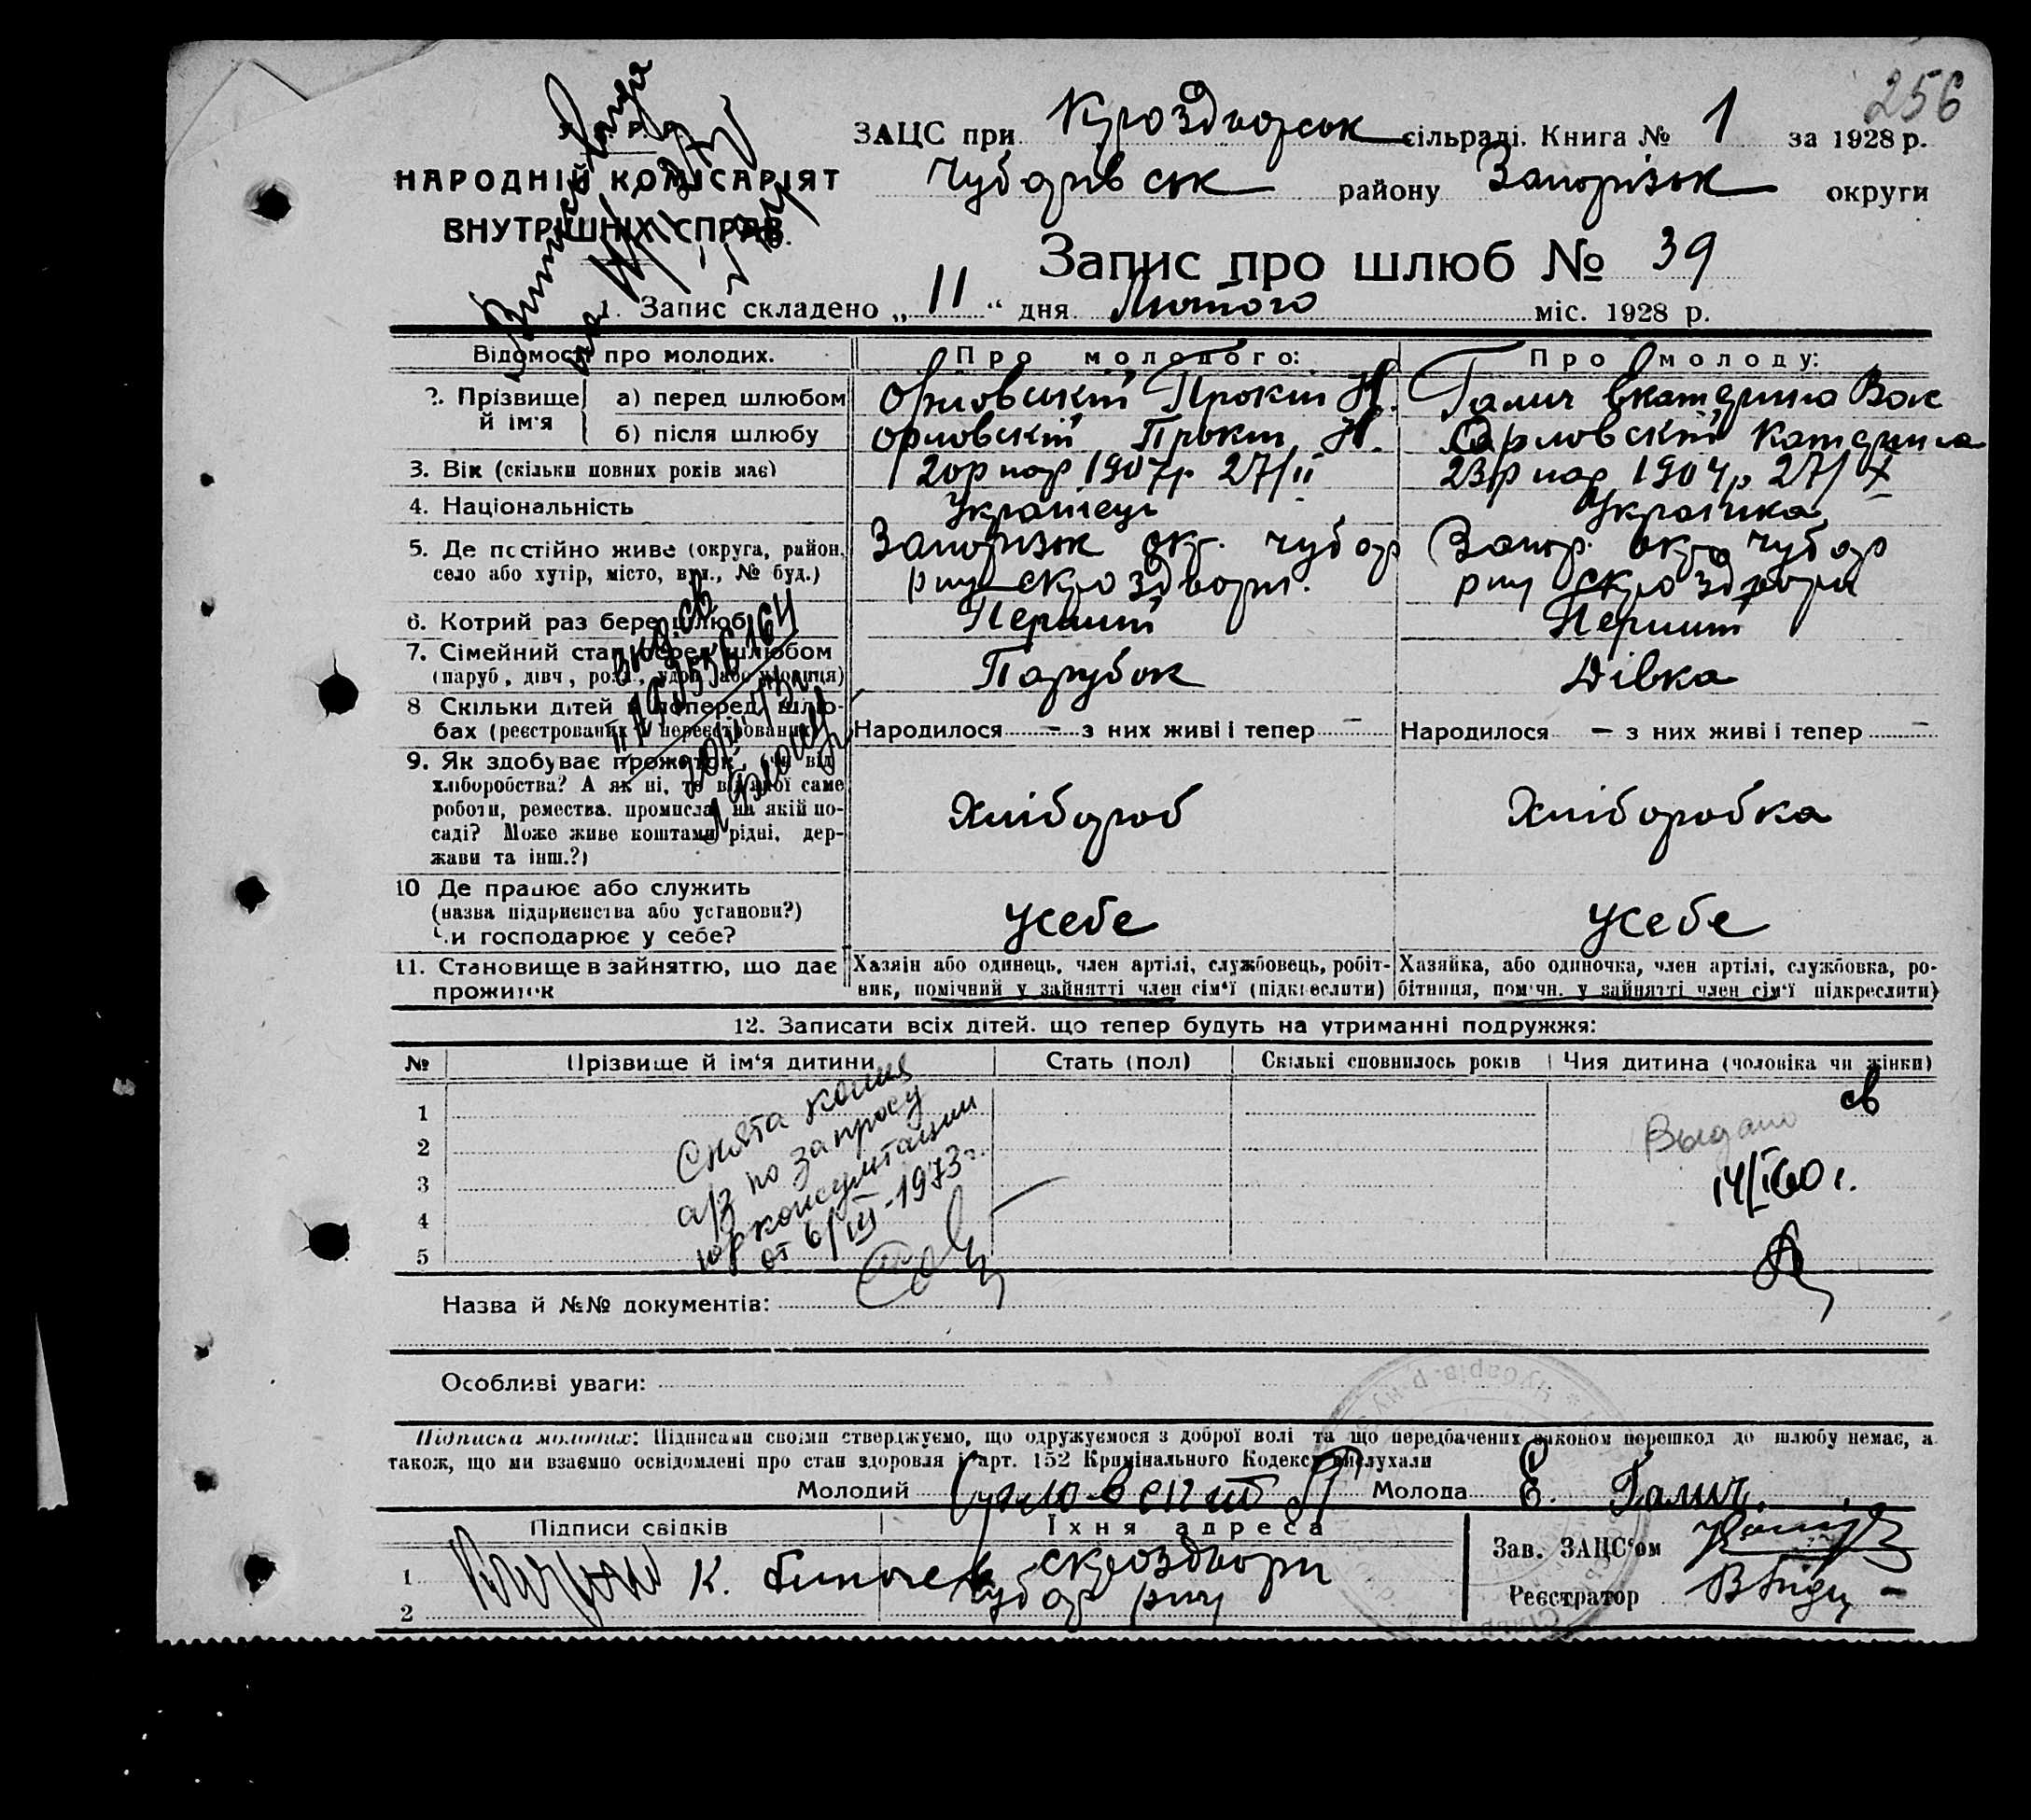 256
НАРОДНІЙ КОМІСАРІЯТ
ВНУТРІШНІХ СПРАВ.
ЗАЦС при Кроздворськ сільраді. Книга № 1 за 1928 р.
Чубарівськ району Запорізьк округи
Запис про шлюб № 39
1. Запис складено „11“ дня Лютого міс. 1928 р.
Відомості про молодих. Про молодого: Про молоду:
2. Прізвище й ім'я а) перед шлюбом Орловський Прокіп Н. Галич Екатерина Вас
б) після шлюбу Орловскій Прокіп Н. Орловскій Катерина
3. Вік (скільки повних років має) 20 р нар 1907 р 27/II 23 р нар 1904 р 27/X
4. Національність Украінець Украінка
5. Де постійно живе (округа, район, село або хутір, місто, вул., № буд.) Запорізьк окр. Чубар Запор. окр Чубар
рну скроздвори. рну скроздвори
6. Котрий раз бере шлюб Перший Перший
7. Сімейний стан перед шлюбом
(паруб, дівч, розл., удов. або удовиця) Парубок Дівка
8 Скільки дітей в поперед. шлюбах (реєстрованих й нереєстрованих) Народилося — з них живі і тепер — Народилося — з них живі і тепер —
9. Як здобуває прожиток, (чи від
хліборобства? А як ні, то від якої саме
роботи, ремества, промисла, на якій посаді? Може живе коштами рідні, держави та інш.?) Хлібороб Хліборобка
10 Де працює або служить
(назва підприємства або установи?)
Чи господарює у себе? Усебе Усебе
11. Становище в зайняттю, що дає
прожиток
Хазяін або одинець, член артілі, службовець, робітник, помічний у зайнятті член сім'ї (підкреслити)
Хазяйка, або одиночка, член артілі, службовка, робітниця, помічн. у зайнятті член сім'ї підкреслити)
12. Записати всіх дітей, що тепер будуть на утриманні подружжя:
№ Прізвище й ім'я дитини Стать (пол) Скількі сповнилось років Чия дитина (чоловіка чи жінки)
1
2
3
4
5
Снята копия
а/з по запросу
юрконсультации
от 6/III-1973 г.
св
Выдано
14/I 60 г.
Назва й №№ документів:
Особливі уваги:
Підписка молодих: Підписами своїми стверджуємо, що одружуємося з доброї волі та що передбачених законом перешкод до шлюбу немає, а
також, що ми взаємно освідомлені про стан здоровля і арт. 152 Кримінального Кодексу вислухали
Молодий Орловский П Молода Е. Галич.
Підписи свідків Їхня адреса
1 К. скроздвори
2 Чубар рну
Зав. ЗАЦС'ом
Реєстратор